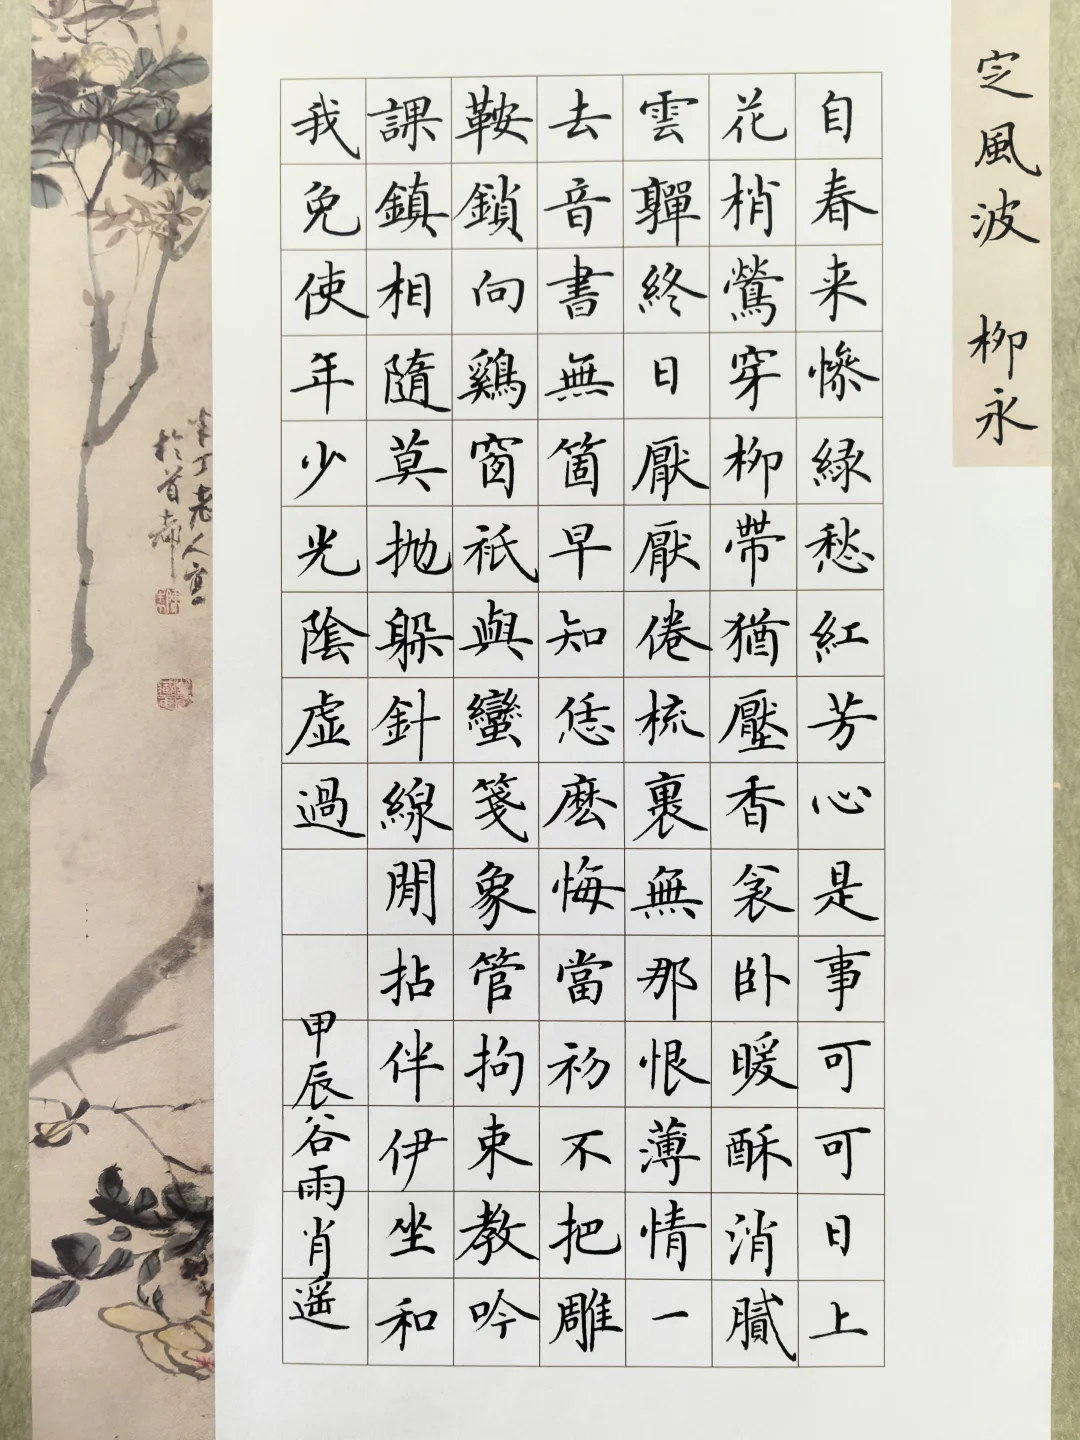 定風波 柳永
自春来慘緑愁紅芳心是事可可日上
花梢鶯穿柳帶猶壓香衾卧暖酥消膩
雲軃終日厭厭倦梳裹無那恨薄情一
去音書無箇早知恁麽悔當初不把雕
鞍鎖向鷄窗衹與蠻箋象管拘束教吟
課鎮相隨莫抛躲針線閒拈伴伊坐和
我免使年少光陰虚過
甲辰谷雨肖遥
老人寫
於首都